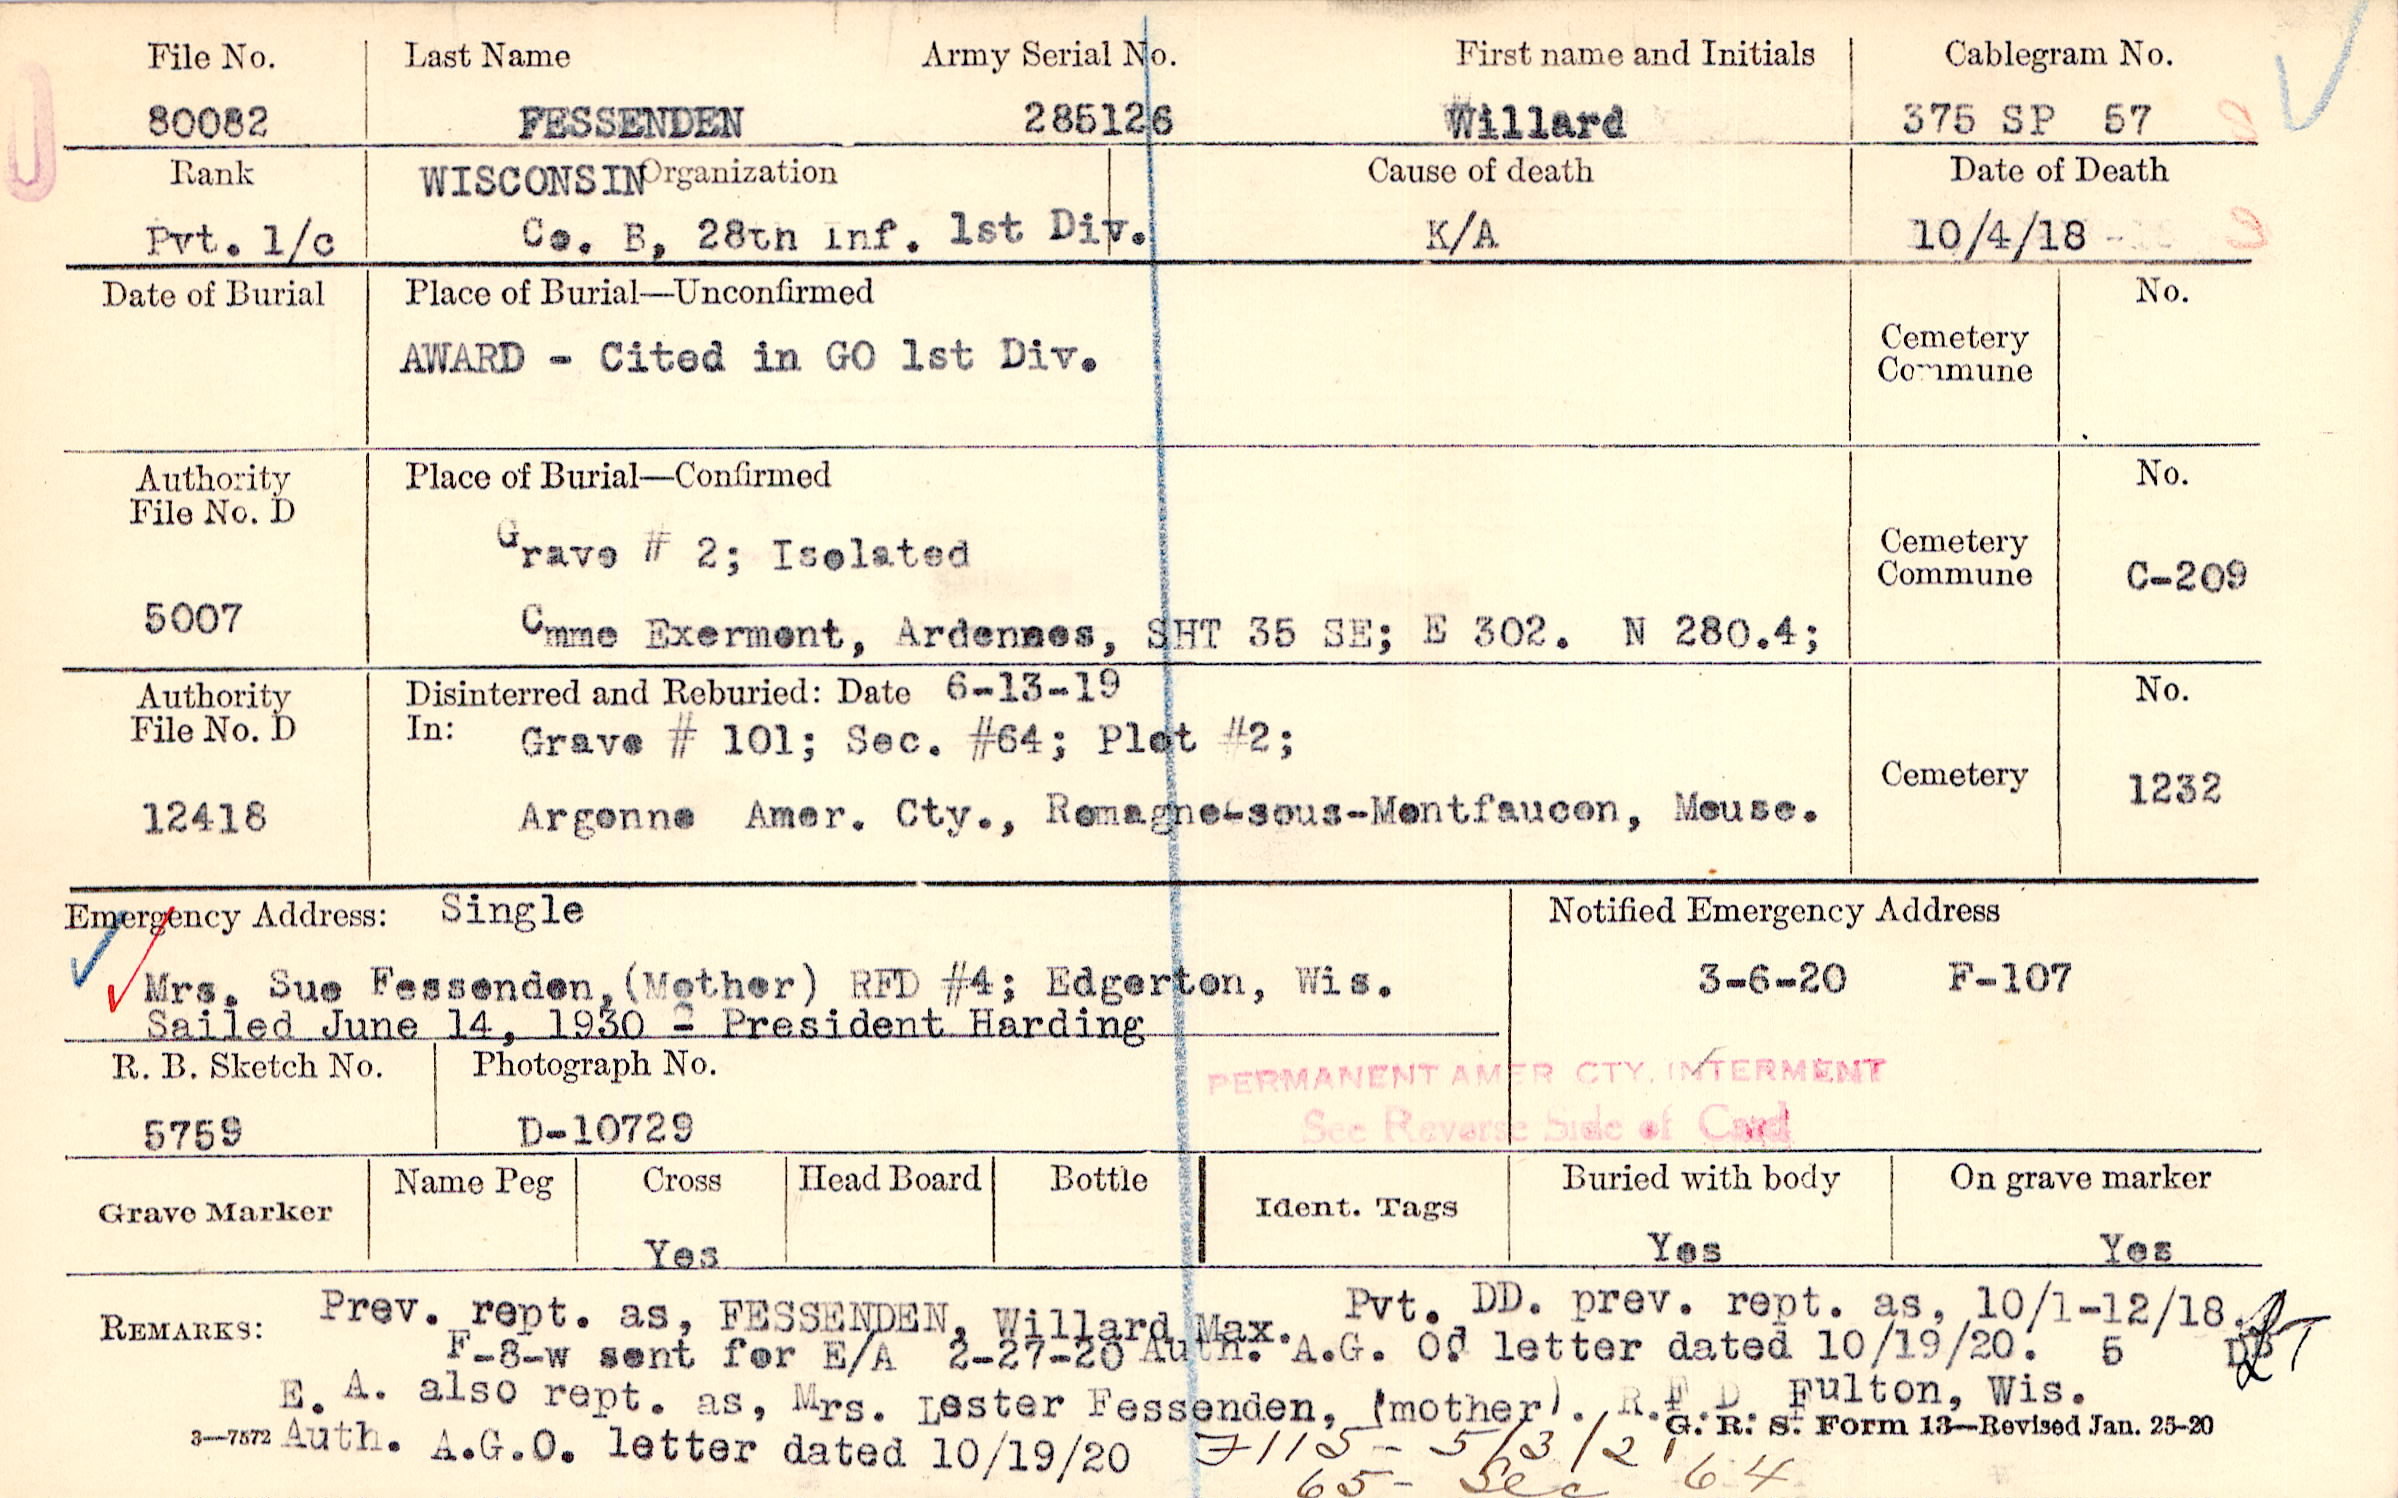 File No. Last Name Army Serial No. First name and Initials Cablegram No.
80082 FESSENDEN 285126 Willard 375 SP 57
Rank WISCONSIN Organization Cause of death Date of Death
Pvt. 1/c Co. B, 28th Inf. 1st Div. K/A 10/4/18
Date of Burial Place of Burial—Unconfirmed No.
AWARD - Cited in GO 1st Div. Cemetery
Commune
Authority Place of Burial—Confirmed No.
File No. D
Grave # 2; Isolated Cemetery
Commune C-209
5007 Cmme Exermont, Ardennes, SHT 35 SE; E 302. N 280.4;
Authority Disinterred and Reburied: Date 6-13-19 No.
File No. D In: Grave # 101; Sec. #64; Plot #2;
Cemetery 1232
12418 Argonne Amer. Cty., Romagne-sous-Montfaucon, Meuse.
Emergency Address: Single Notified Emergency Address
Mrs. Sue Fessenden,(Mother) RFD #4; Edgerton, Wis. 3-6-20 F-107
Sailed June 14, 1930 - President Harding
R. B. Sketch No. Photograph No. PERMANENT AMER CTY. INTERMENT
5759 D-10729 See Reverse Side of Card
Grave Marker Name Peg Cross Head Board Bottle Ident. Tags Buried with body On grave marker
Yes Yes Yes
REMARKS: Prev. rept. as, FESSENDEN, Willard Max. Pvt. DD. prev. rept. as, 10/1-12/18.
F-8-w sent for E/A 2-27-20 Auth. A.G. Of letter dated 10/19/20. 5
E. A. also rept. as, Mrs. Lester Fessenden, (mother). R.F.D. Fulton, Wis.
G. R. S. Form 13—Revised Jan. 25-20
3—7572 Auth. A.G.O. letter dated 10/19/20 F115 - 5/3/21
65- Sec 64